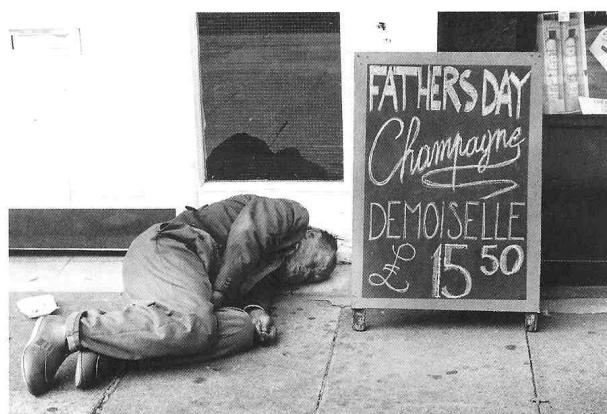 FATHERS DAY
Champagne
DEMOISELLE
£ 15 50